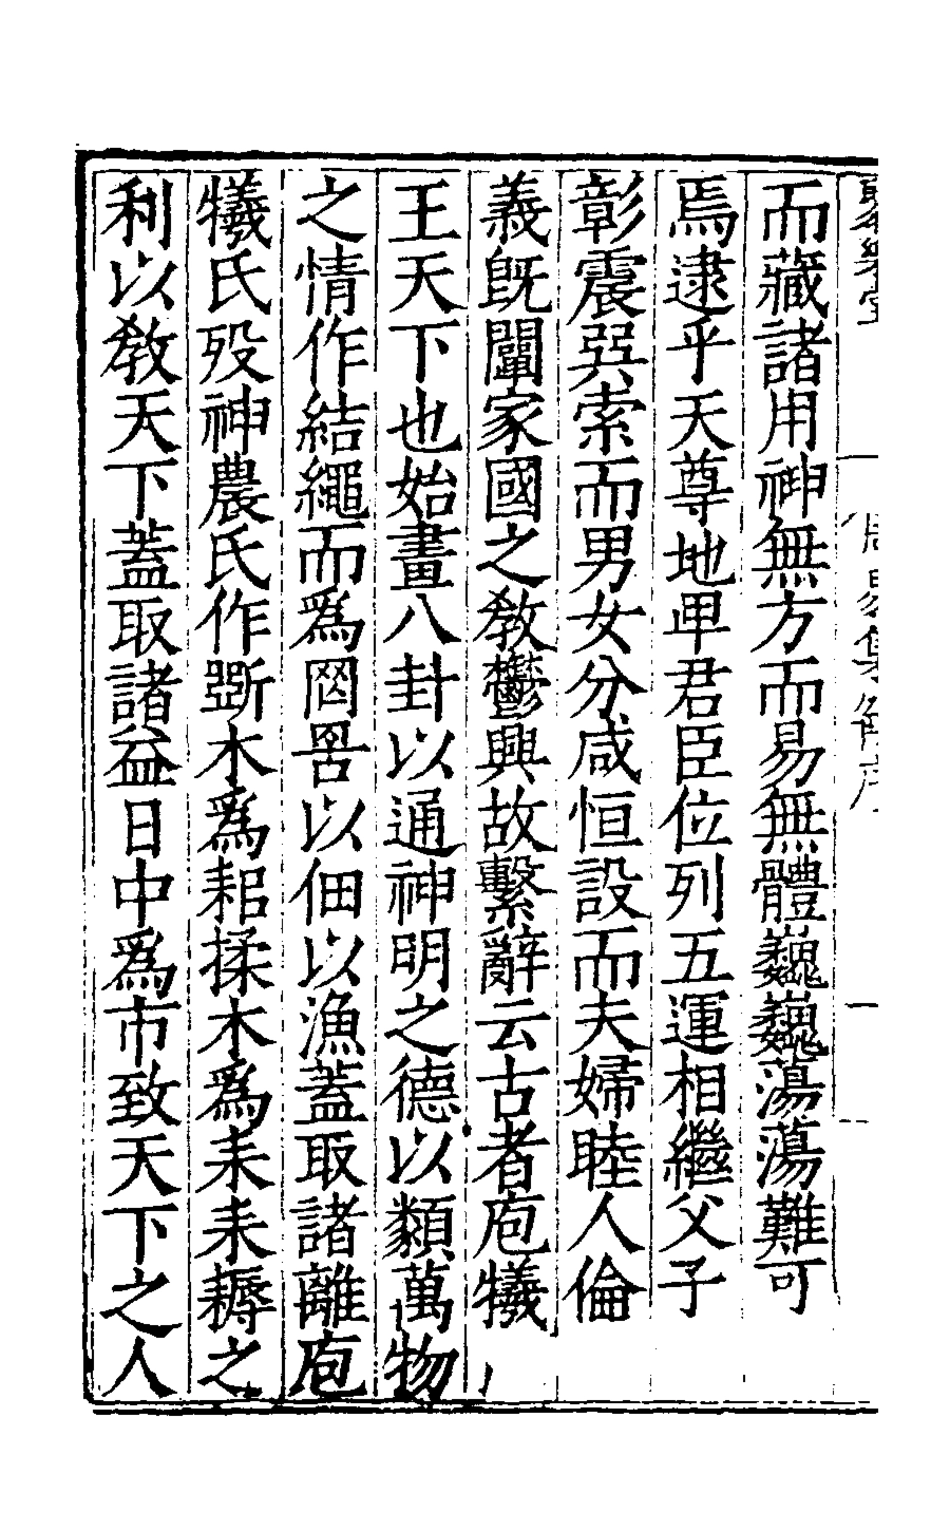 聚樂堂 周易集解序
而藏諸用神無方而易無體巍巍蕩蕩難可
焉逮乎天尊地卑君臣位列五運相繼父子
彰震巽索而男女分咸恒設而夫婦睦人倫
義旣闡家國之敎鬱興故繫辭云古者庖犧
王天下也始畫八卦以通神明之德以類萬物
之情作結繩而爲罔罟以佃以漁蓋取諸離庖
犧氏歿神農氏作斲木爲耜揉木爲耒耒耨之
利以敎天下蓋取諸益日中爲市致天下之人